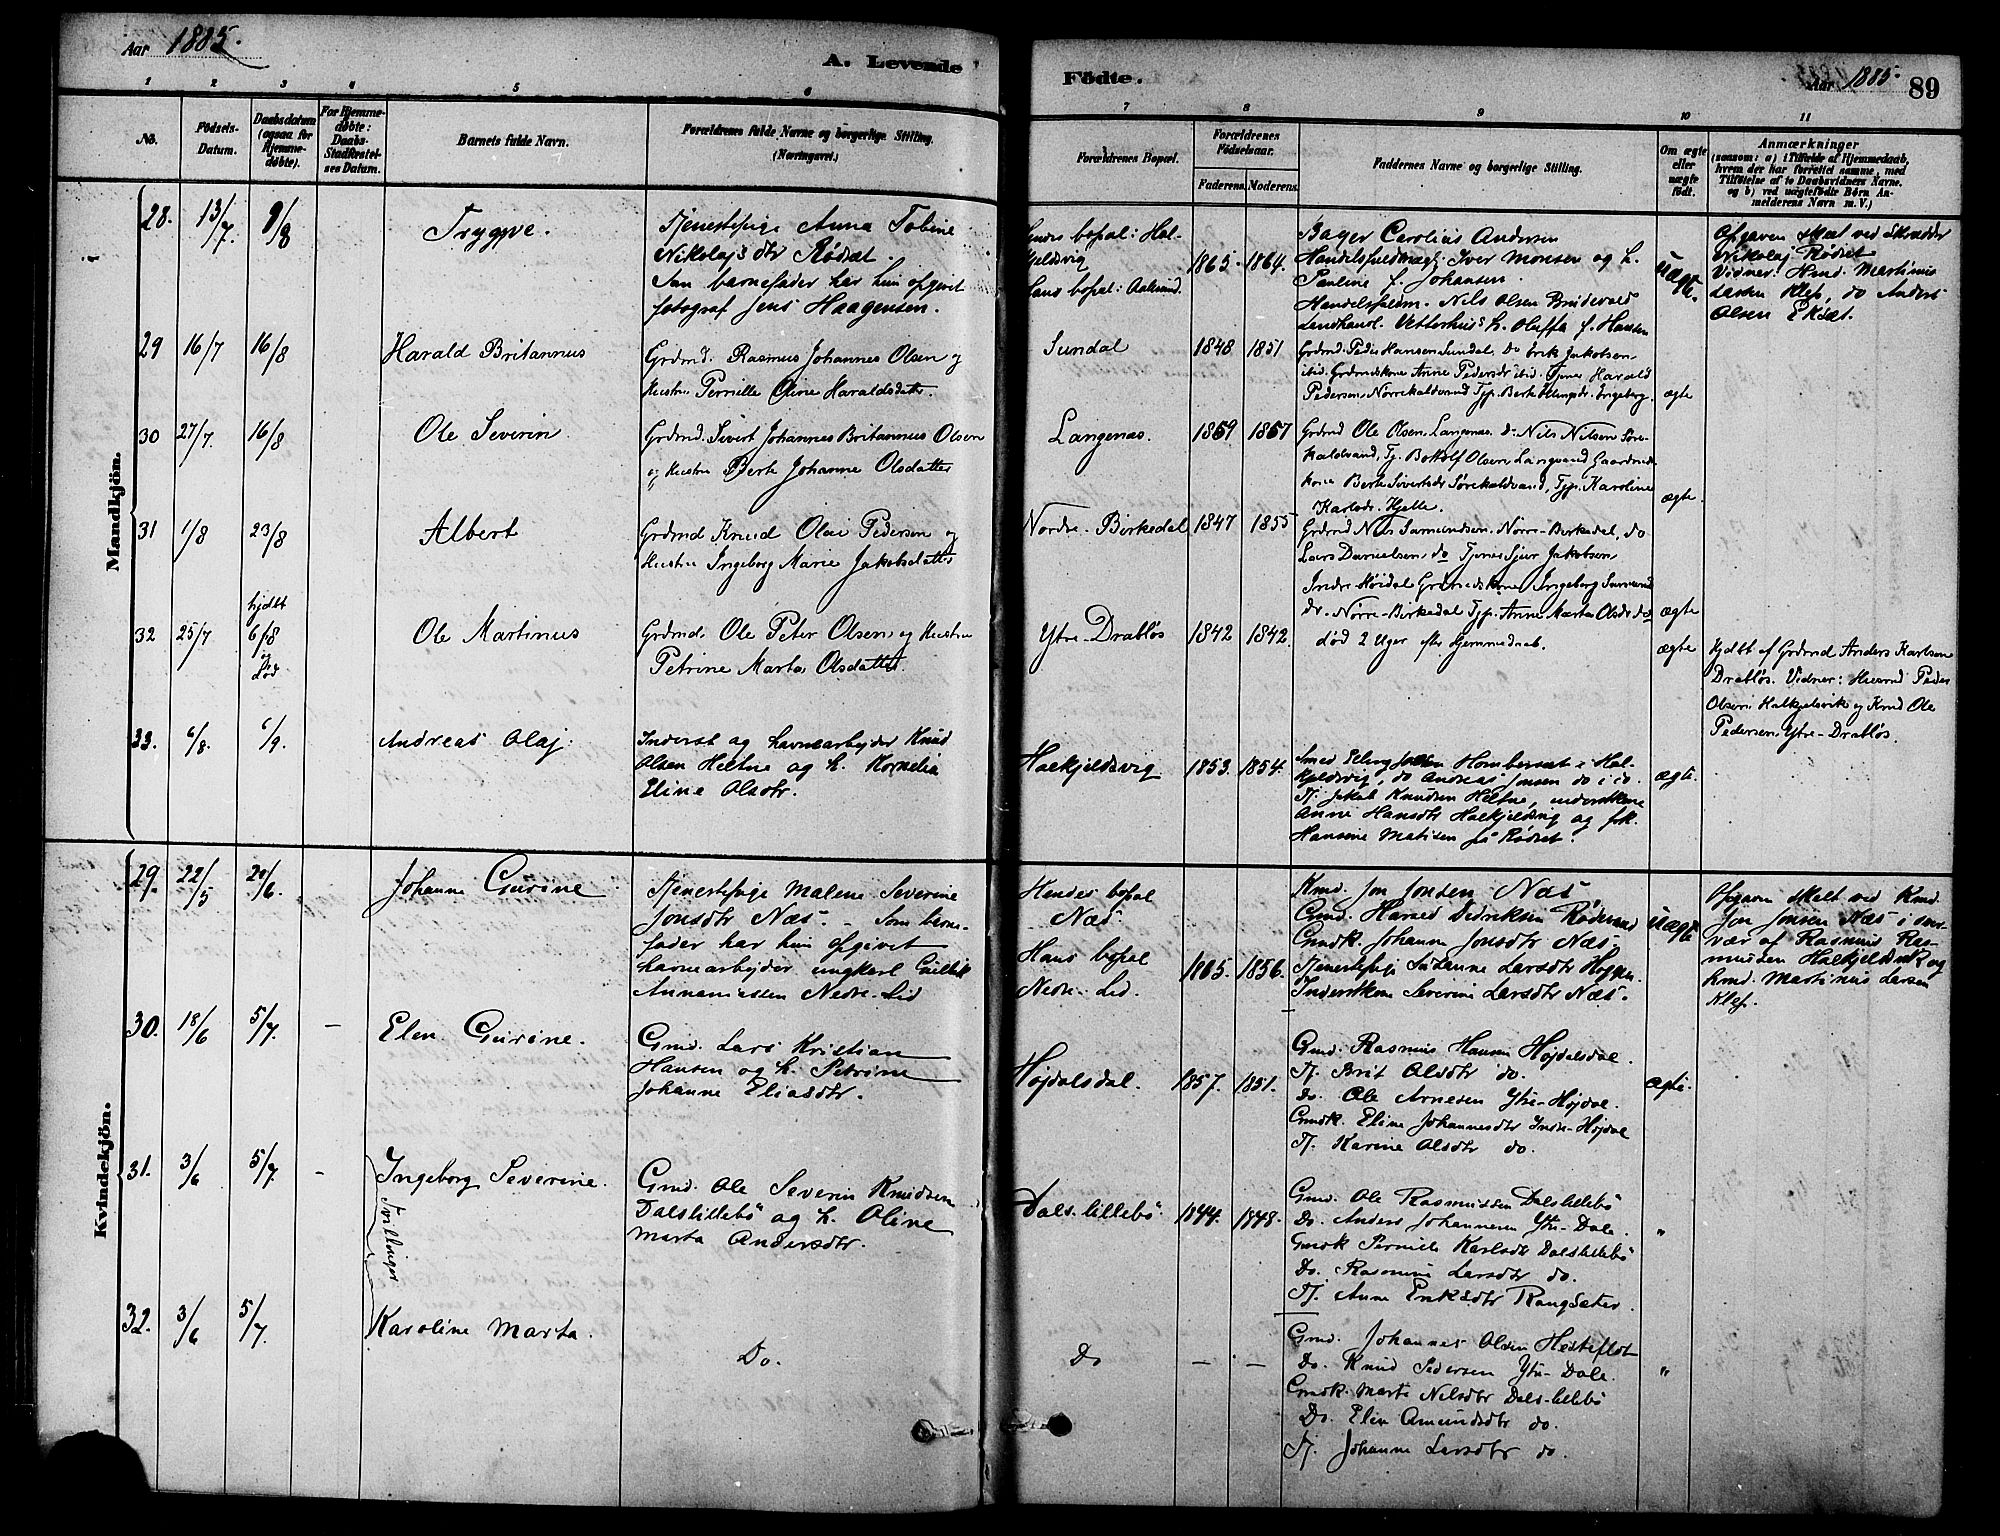 Aar 1885.
A. Levende
Fødte.
Aar 1885.
89
1
2
3
4
5
6
7
8
9
10
11
No.
Fødsels-
Datum.
Daabsdatum
(ogsaa for
Hjemme-
døbte).
For Hjemme-
døbte:
Daabs-
Stadfæstel-
ses Datum.
Barnets fulde Navn.
Forældrenes fulde Navne og borgerlige Stilling.
(Næringsvei.)
Forældrenes Bopæl.
Forældrenes
Fødselsaar.
Faderens.
Moderens.
Faddernes Navne og borgerlige Stilling.
Om ægte
eller
uægte
født.
Anmærkninger
(saasom: a) i Tilfælde af Hjemmedaab,
hvem der har forrettet samme, med
Tilføielse af to Daabsvidners Navne.
og b) ved uægtefødte Børn An-
melderens Navn m. V.)
Mandkjön.
28. 13/7. 9/8 Trygve.
Tjenestepige Anna Tobine
Nikolajsdtr Rødsæt.
Som barnefader har hun opgivet
fotograf Jens Haagensen.
Hendes bopæl: Hal-
kjeldsvig
Hans bopæl: Aalesund.
1865. 1864.
Bager Carolius Andersen
Handelsfuldmægt. Iver Monsen og h.
Pauline f. Johansen
Handelsfuldm. Nils Olsen Brudevold
Landhandl. Vetterhus h. Oluffa f. Hansen
uægte.
Opgaven skeet ved Skrædder
Nikolaj Rødset
Vidner: Hmd. Martinus
Larsen Klep, do Anders
Olsen Eksæt.
29 16/7 16/8 Harald Britannus
Grdmd. Rasmus Johannes Olsen og
Hustru Pernille Oline Haraldsdatter
Sundal 1848 1851
Grdmd. Peder Hansen Sundal, Do Erik Jakobsen
ibid. Grdmdskone Anne Pedersdr ibid. Tjener Harald
Pedersen, Nörrekaldvand Typ. Berte Oline Ingeberg.
ægte
30 27/7. 16/8 Ole Severin.
Grdmd. Sivert Johannes Britannus Olsen
og Hustru Berte Johanne Olsdatter
Langenæs. 1859 1857
Grdmd Ole Olsen, Langenæs. do Nils Nilsen Søre-
kaldvand, Tj. Bottolf Olsen Langvand Gaardmds-
kone Berte Sivertsdr Sørekaldvand, Typ. Karoline
Karlsdr. Hjelle.
ægte
31 1/8 23/8 Albert
Grdmd Knud Olai Pedersen og
Hustru Ingeborg Marie Jakobsdatter
Nordre-Birkedal 1847 1855
Grdmd Nils Samundsen. Nörre-Birkedal, do
Lars Danielsen, do Tjener Sjur Jakobsen
Indre-Höidal Grdmdskone Ingeborg Samund
dr. Nörre-Birkedal Typ. Anne Marta Olsdr do
ægte
32 25/7 hjdbt 6/8 og død
Ole Martinus
Grdmd. Ole Peter Olsen og Hustru
Petrine Marta Olsdatter.
Ytre-Drabløs 1842 1842.
død 2 Uger efter Hjemmedaab.
ægte
Hjdbt af Grdmd Anders Karlsen
Drabløs. Vidner: Husmd Peder
Olsen Halkjelsvik og Kmd Ole
Pedersen Ytre-Drabløs.
33. 6/8. 6/9. Andreas Olaj.
Inderst og havnearbejder Knud
Olsen Heltne og h. Kornelia
Eline Olsdtr.
Halkjeldsvig 1853. 1854.
Smed Elling Hombersæt i Hal-
kjeldsvig, do Andreas Jonsen do i do.
Tj. Jakob Knudsen Heltne, inderstkone
Anne Hansdtr Halkjeldsvig og frk.
Hansine Matisen fra Rødset.
ægte.
Kvindekjön.
29. 22/5 20/6. Johanne Gurine
Tjenestepige Malene Severine
Jonsdtr Næs. – Som barne-
fader har hun opgivet
havnearbejder ungkarl
Ananiassen Nedre-Lid
Hendes bopæl
Næs
Hans bopæl
Nedre-Lid
1865. 1856.
Kmd. Jon Jonsen Næs
Gmd. Harald Didriksen Rødesand
Gmdk. Johanne Jonsdtr Næs.
Tjenestepige Susanne Larsdtr Hoggen
Inderstkone Severine Larsdtr Næs.
uægte
Opgaven skelt ved Kmd.
Jon Jonsen Næs i over-
vær af Rasmus Ras-
mussen Halkjeldsvik og
kmd. Martinus Larsen
Klep.
30. 18/6 5/7. –
Elen Gurine.
Gmd. Lars Kristian
Hansen og h. Petrine
Johanne Eliasdtr.
Højdalsdal. 1857. 1851.
Gmd. Rasmus Hansen Højdalsdal.
Tj. Brit Olsdtr do.
Do. Ole Arnesen Ytre-Højdal.
Gmdk. Eline Johannesdtr Indre-Højdal
Tj. Karine Olsdtr do.
ægte.
31. 3/6 5/7. –
Ingeborg Severine.
Tvillinger
Gmd. Ole Severin Knudsen
Dalslillebö og h. Oline
Marta Andersdtr.
Dalslillebö. 1844. 1848.
Gmd. Ole Rasmussen Dalslillebö
Do. Anders Johannesen Ytre-Dale.
Gmdk Pernille Karlsdtr Dalslillebö
Do. Rasmine Larsdtr do.
Tj. Anne Eriksdtr Rangsæter.
"
32. 3/6 5/7.
Karoline Marta.
Do.
Do – –
Gmd. Johannes Olsen Hesteflot
Do. Knud Pedersen Ytre-Dale.
Gmdk. Marte Nilsdtr Dalslillebö
Do. Elen Amundsdtr do.
Tj. Johanne Larsdtr do
"